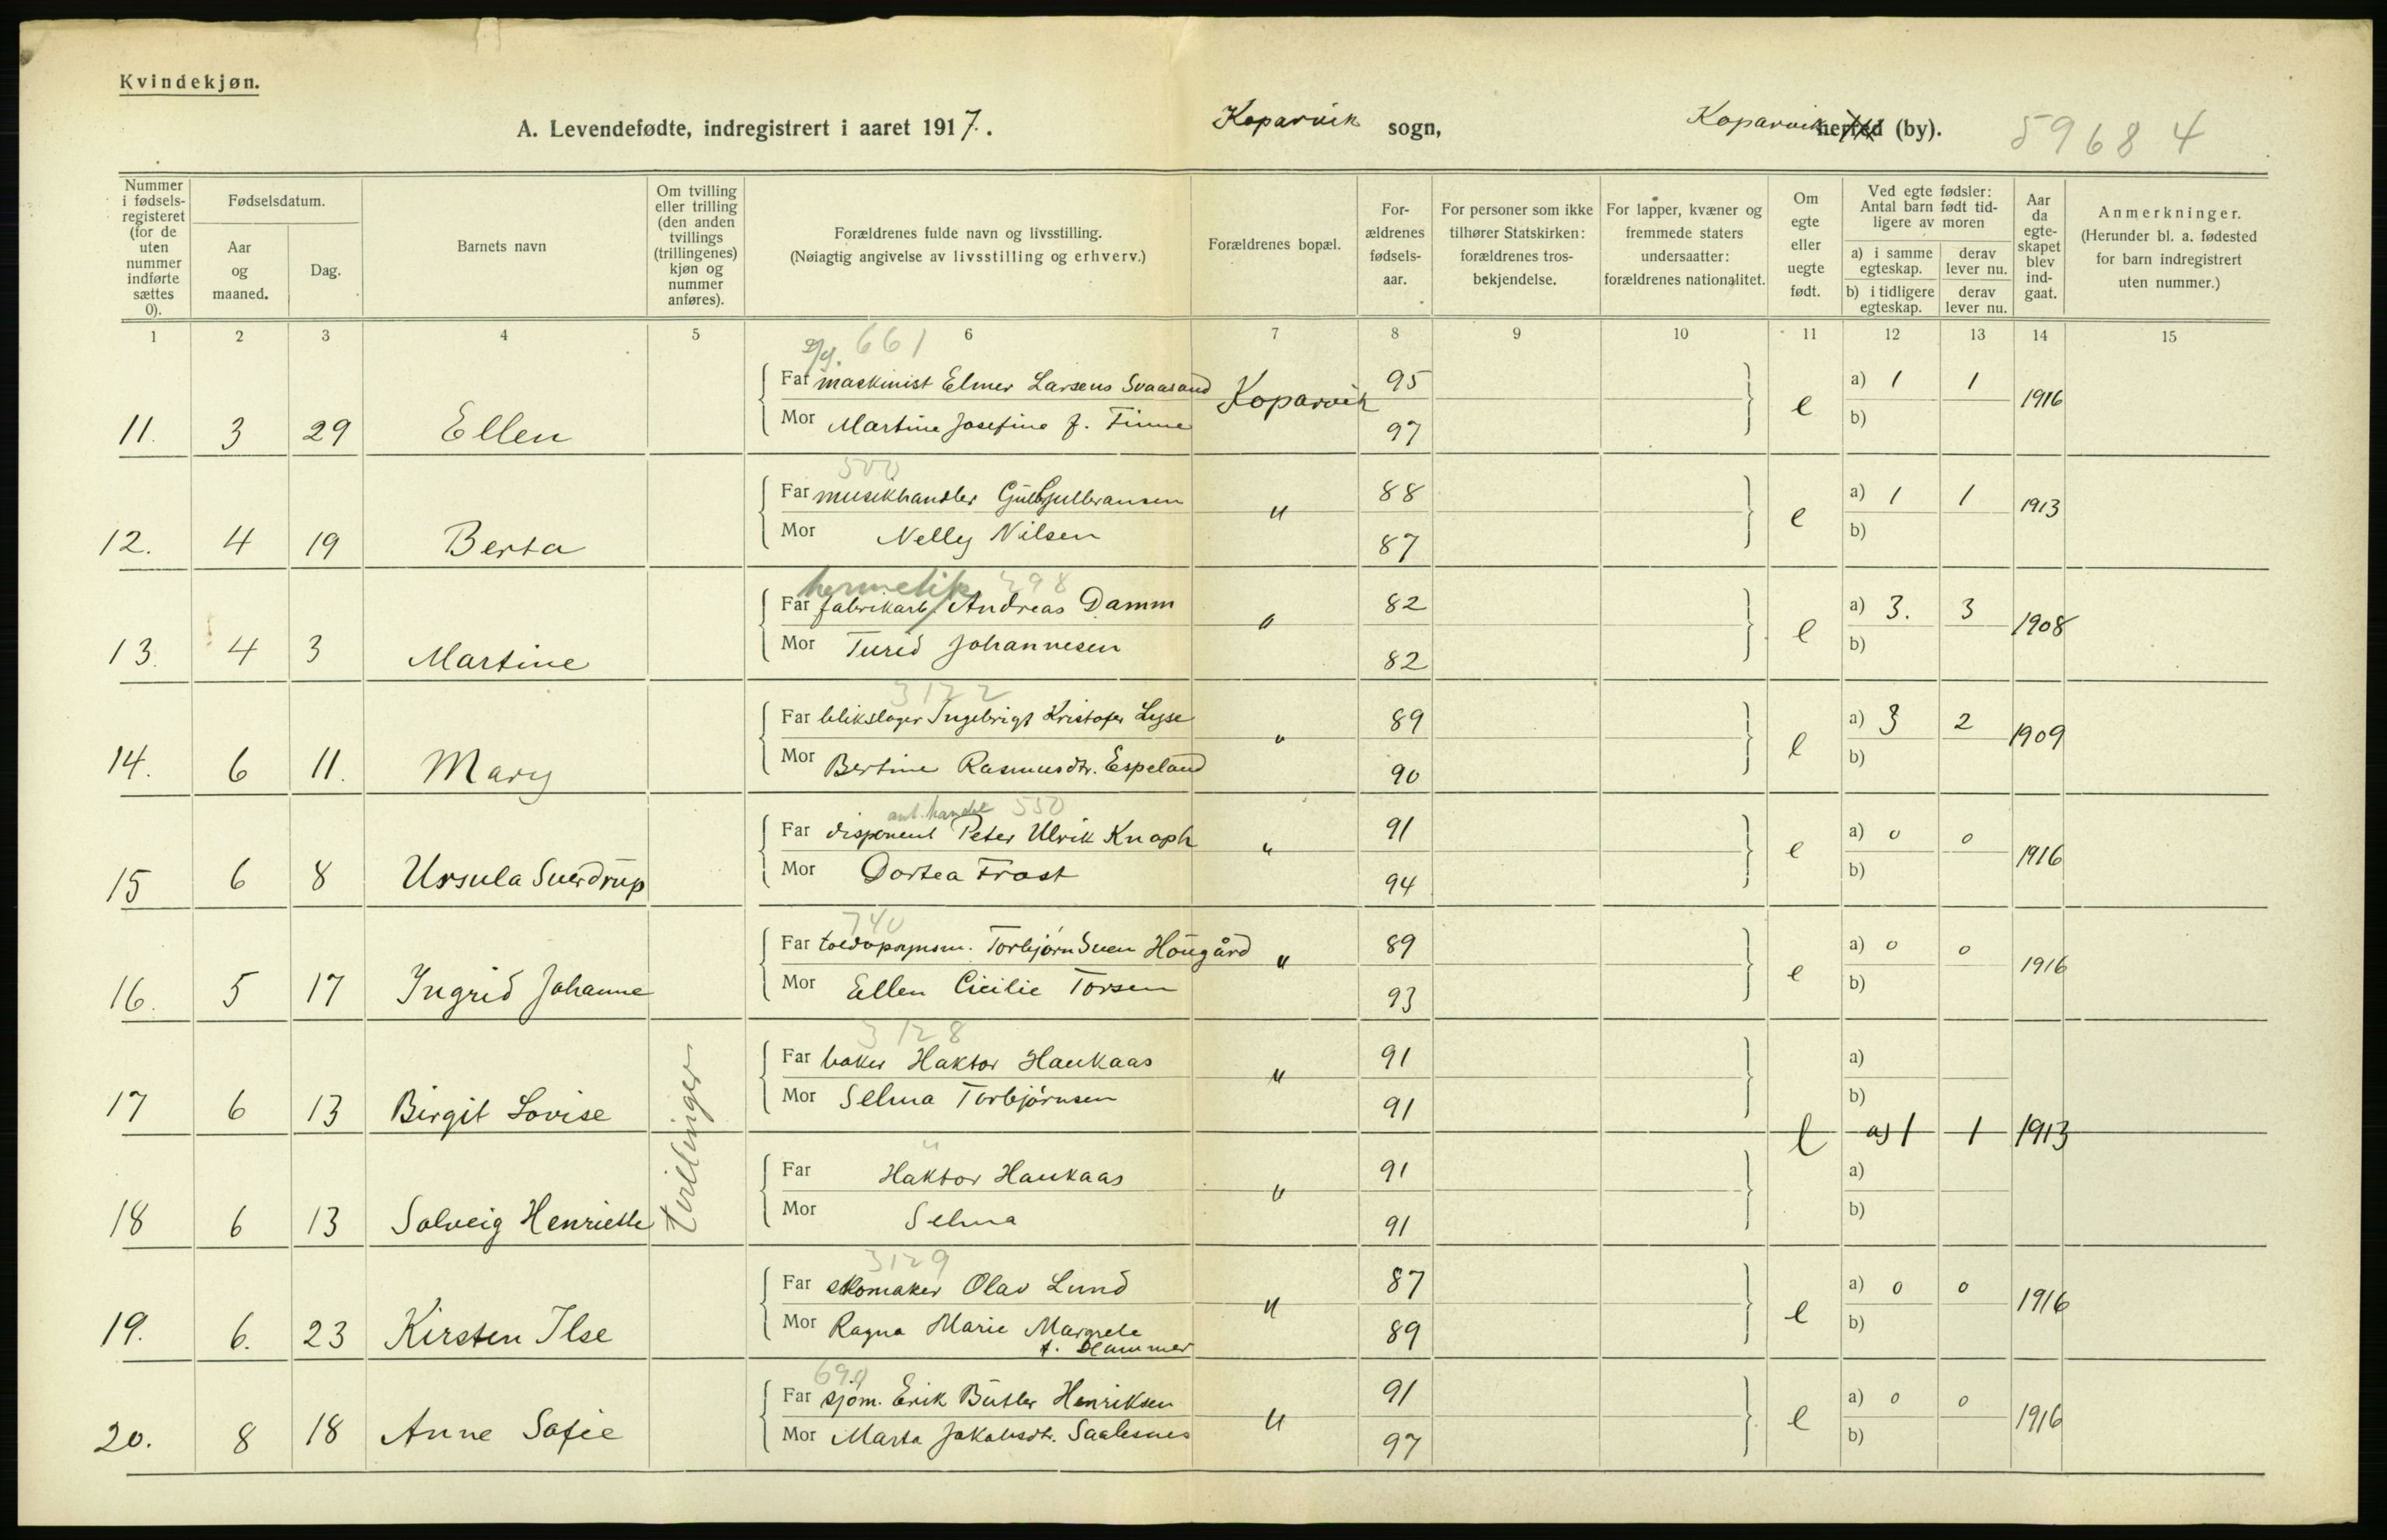 Kvindekjøn.
A. Levendefødte, indregistrert i aaret 1917. Koparvik sogn, Koparvik herred (by). 59684
Nummer i fødsels-registeret (for de uten nummer indførte sættes 0).
Fødselsdatum.
Aar og maaned.
Dag.
Barnets navn
Om tvilling eller trilling (den anden tvillings (trillingenes) kjøn og nummer anføres).
Forældrenes fulde navn og livsstilling.
(Nøiagtig angivelse av livsstilling og erhverv.)
Forældrenes bopæl.
For-ældrenes fødsels-aar.
For personer som ikke tilhører Statskirken: forældrenes tros-bekjendelse.
For lapper, kvæner og fremmede staters undersaatter: forældrenes nationalitet.
Om egte eller uegte født.
Ved egte fødsler: Antal barn født tid-ligere av moren
a) i samme egteskap.
derav lever nu.
b) i tidligere egteskap.
derav lever nu.
Aar da egte-skapet blev ind-gaat.
Anmerkninger.
(Herunder bl. a. fødested for barn indregistrert uten nummer.)
1 2 3 4 5 6 7 8 9 10 11 12 13 14 15
661
Far maskinist Elmer Larsens Svaasand Koparvik 95 a) 1 1
11. 3 29 Ellen e 1916
Mor Martine Josefine f. Finne 97 b)
500
Far musikhandler Gulb Gulbransen " 88 a) 1 1
12. 4 19 Berta e 1913
Mor Nelly Nilsen 87 b)
hermetik 298
Far fabrikarb. Andreas Damm " 82 a) 3. 3
13. 4 3 Martine e 1908
Mor Turid Johannesen 82 b)
3122
Far blikslager Ingebrigt Kristofer Lyse " 89 a) 3 2
14. 6 11. Mary e 1909
Mor Bertine Rasmusdtr. Espeland 90 b)
handel 550
Far disponent Peter Ulrik Knaph " 91 a) 0 0
15 6 8 Ursula Sverdrup e 1916
Mor Dortea Frost 94 b)
740
Far toldopsynsm. Torbjørn Sven Hougård " 89 a) 0 0
16. 5 17 Ingrid Johanne e 1916
Mor Ellen Cicilie Torsen 93 b)
3128
Far baker Haktor Haukaas " 91 a)
17 6 13 Birgit Lovise tvillinger
Mor Selma Torbjørnsen 91 b)
e a) 1 1 1913
"
Far Haktor Haukaas " 91 a)
18 6 13 Solveig Henriette
Mor Selma 91 b)
3129
Far skomaker Olav Lund " 87 a) 0 0
19. 6. 23 Kirsten Ilse e 1916
Mor Ragna Marie Margrete 89 b)
f. Hammer
694
Far sjøm. Erik Butler Henriksen " 91 a) 0 0
20. 8 18 Anne Sofie e 1916
Mor Marta Jakobsdtr. Saalesnes 97 b)